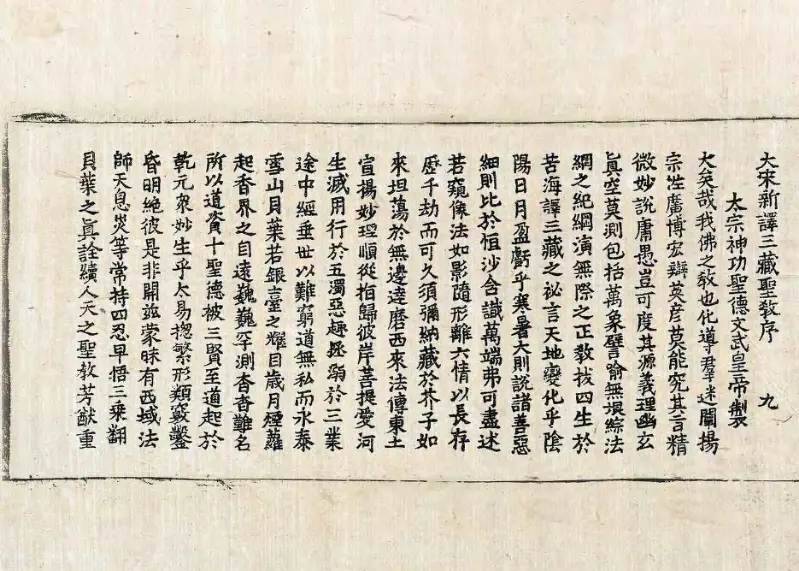 大宋新譯三藏聖教序　九
太宗神功聖德文武皇帝製
大矣哉我佛之教也化導羣迷闡揚
宗性廣博宏辯英彥莫能究其言精
微妙說庸愚豈可度其源義理幽玄
真空莫測包括萬象譬喻無垠綜法
綱之紀綱演無際之正教拔四生於
苦海譯三藏之祕言天地變化乎陰
陽日月盈虧乎寒暑大則說諸善惡
細則比於恒沙含識萬端弗可盡述
若窺像法如影隨形離六情以長存
歷千劫而可久須彌納藏於芥子如
來坦蕩於無邊達磨西來法傳東土
宣揚妙理順從指歸彼岸菩提愛河
生滅用行於五濁惡趣拯溺於三業
途中經垂世以難窮道無私而永泰
雪山貝葉若銀臺之耀目歲月煙蘿
起香界之自遠巍巍罕測杳杳難名
所以道資十聖德被三賢至道起於
乾元眾妙生乎太易摠繁形類竅鑿
昏明絕彼是非開茲蒙昧有西域法
師天息災等常持四忍早悟三乘翻
貝葉之真詮續人天之聖教芳猷重